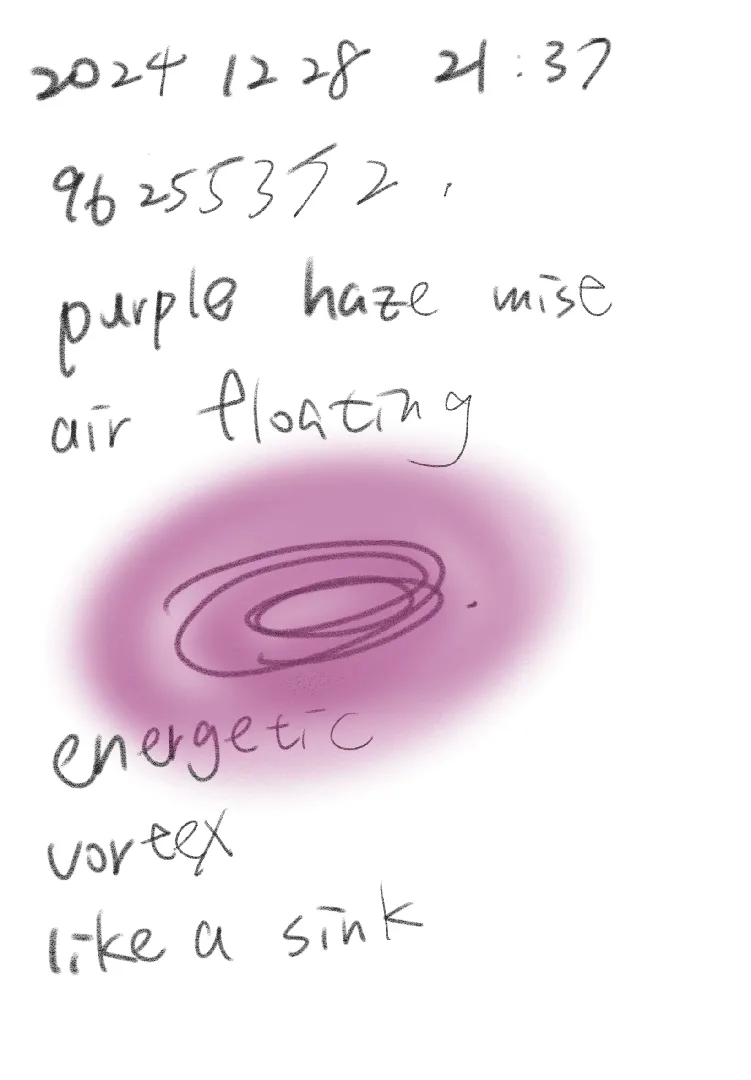 2024 12 28 21:37
96255372.
purple haze mise
air floating
energetic
vortex
like a sink